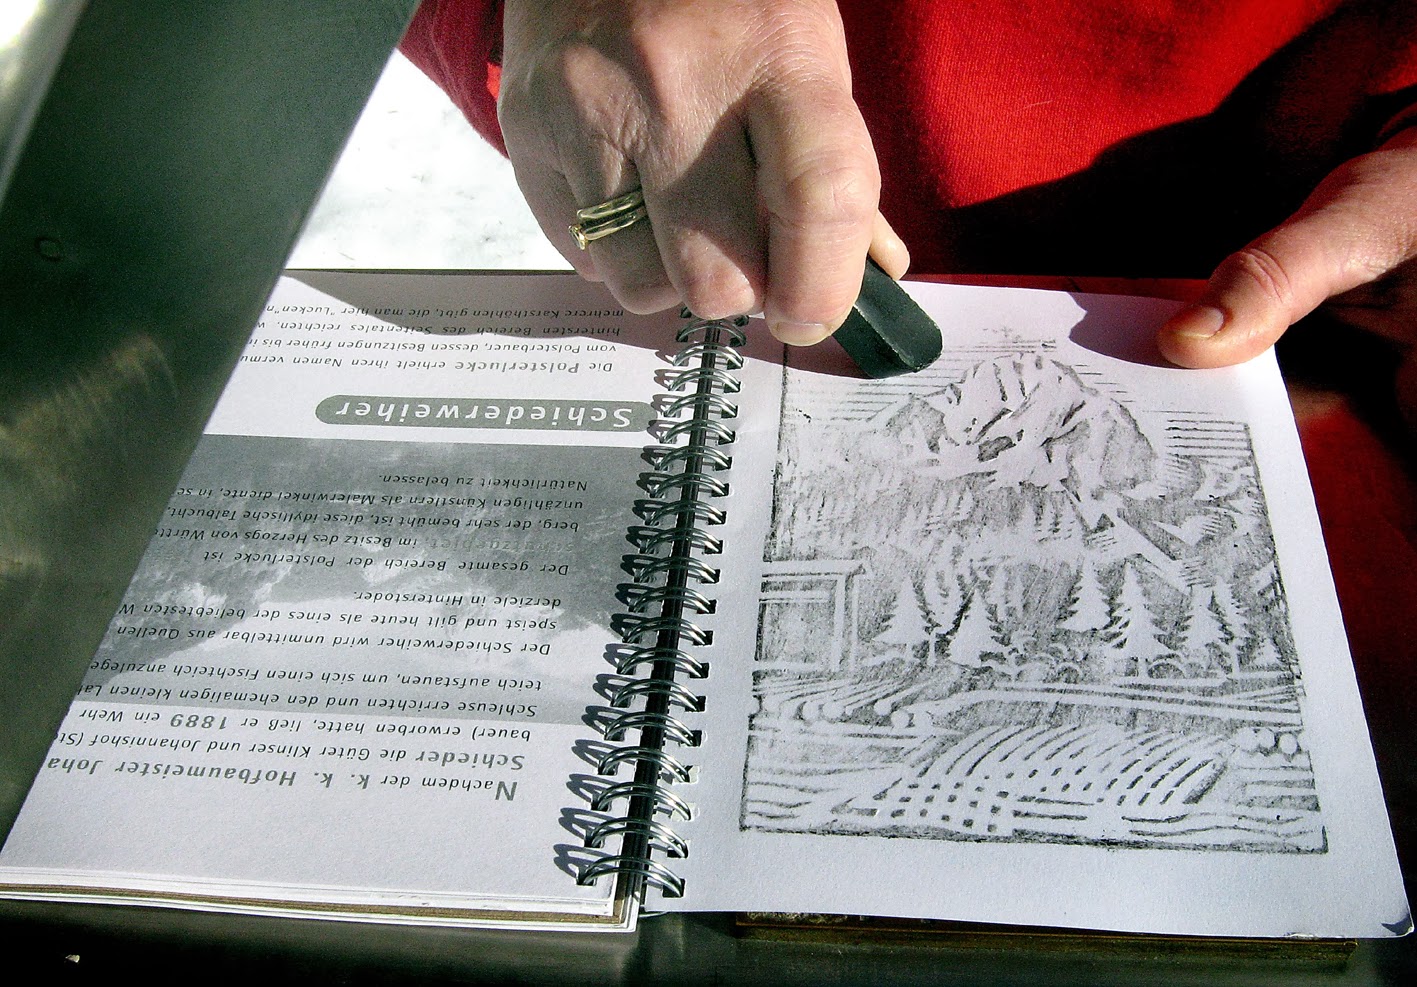 Nachdem der k. k. Hofbaumeister Joha
Schieder die Güter Klinser und Johannishof (St
bauer) erworben hatte, ließ er 1889 ein Wehr
Schleuse errichten und den ehemaligen kleinen La
teich aufstauen, um sich einen Fischteich anzulege
Der Schiederweiher wird unmittelbar aus Quellen
speist und gilt heute als eines der beliebtesten W
derziele in Hinterstoder.
Der gesamte Bereich der Polsterlucke ist
im Besitz des Herzogs von Württe
berg, der sehr bemüht ist, diese idyllische Talbucht,
unzähligen Künstlern als Malerwinkel diente, in se
Natürlichkeit zu belassen.
Schiederweiher
Die Polsterlucke erhielt ihren Namen vermu
vom Polsterbauer, dessen Besitzungen früher bis i
hintersten Bereich des Seitentales reichten, w
mehrere Karsthöhlen gibt, die man hier "Lucken"n